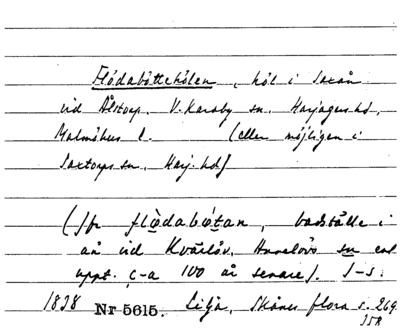 Flödaböttehölen, höl i Saxån
vid Ålstorp. V. Karaby sn, Harjagers hd,
Malmöhus l. (eller möjligen i
Saxtorps sn, Harj. hd)
(Jfr flödabotan, badställe i
ån vid Kvärlöv, Annelövs sn enl
uppt. c-a 100 år senare). J-s.
1838 Nr 5615. Lilja, Skånes flora s. 269
358